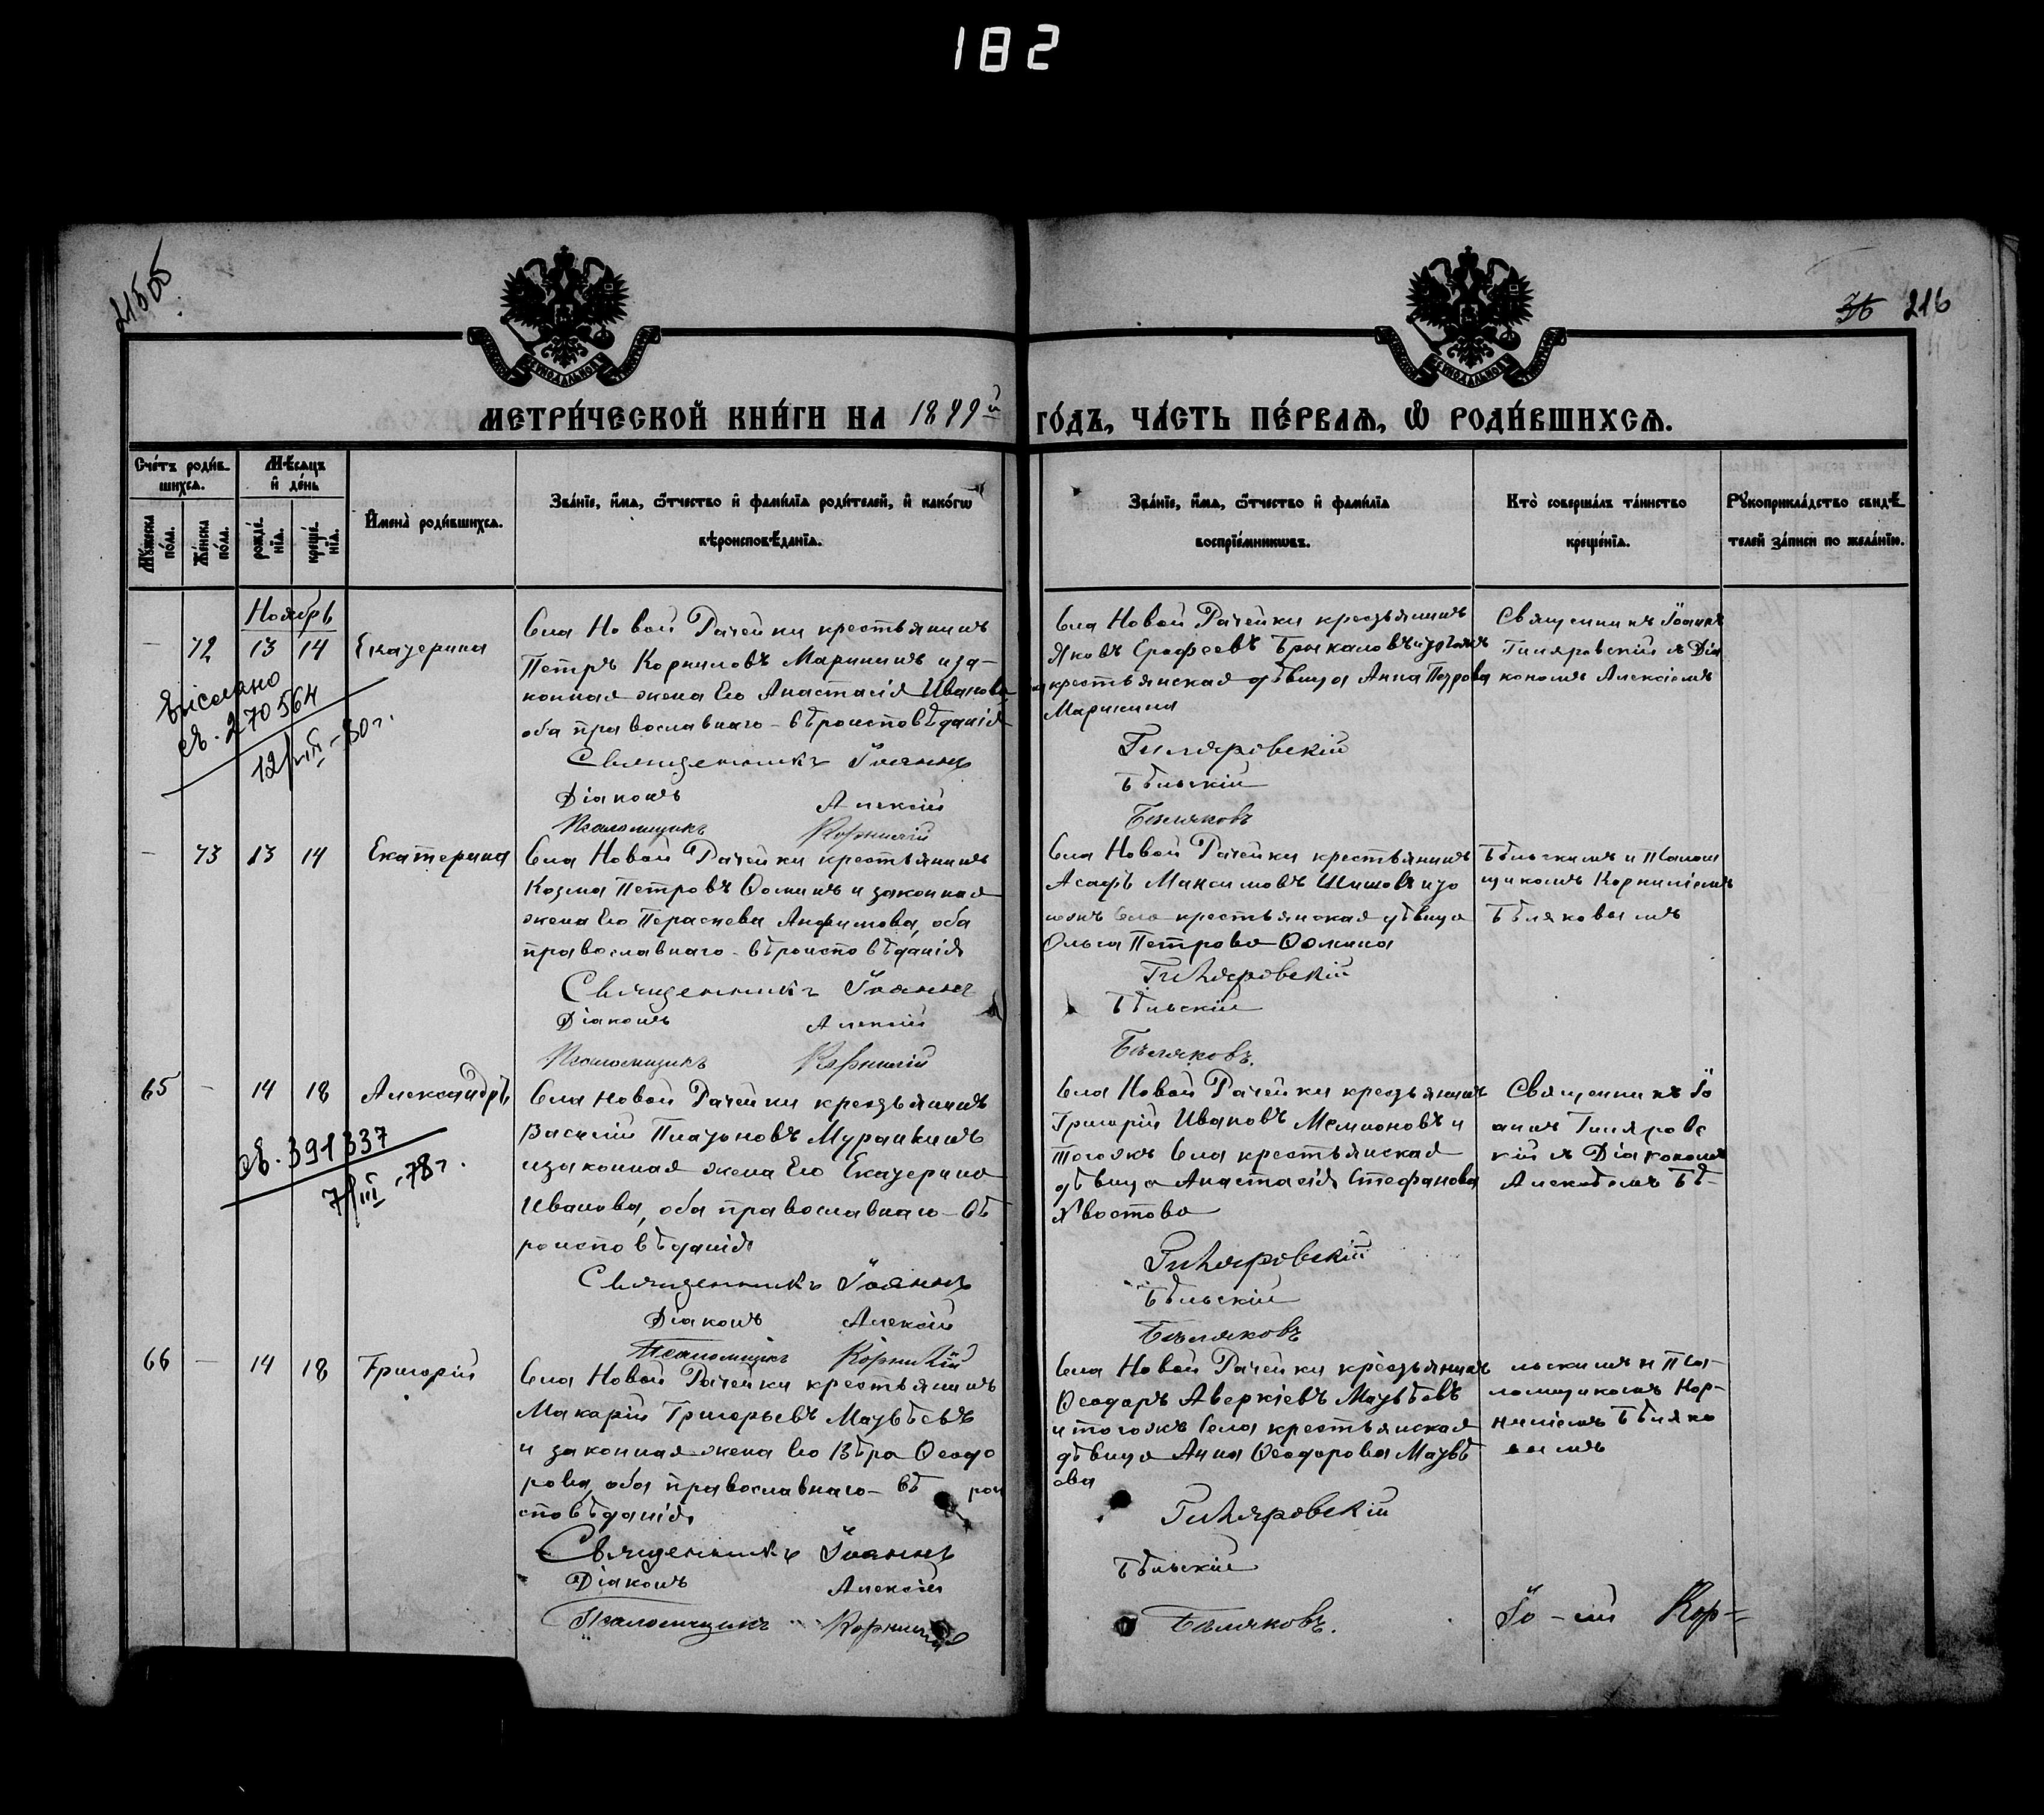 182
215об
36 216
МЕТРИ́ЧЕСКОЙ КНИ́ГИ НА 1899й ГО́ДЪ, ЧА́СТЬ ПЕ́РВАѦ, Ѡ҆ РОДИ́ВШИХСѦ.
Сче́тъ роди́в-
шихсѧ.
Мꙋ́жеска
по́ла.
Же́нска
по́ла.
Мѣ́сѧцъ
и҆ де́нь
рожде́-
нїѧ.
креще́-
нїѧ.
И҆мена̀ роди́вшихсѧ.
Зва́нїе, и҆́мѧ, ѻ҆́тчество и҆ фами́лїѧ роди́телей, и҆ како́гѡ
вѣроисповѣ́данїѧ.
Зва́нїе, и҆́мѧ, ѻ҆́тчество и҆ фами́лїѧ
воспрїе́мникѡвъ.
Кто̀ соверша́лъ та́инство
креще́нїѧ.
Рꙋкоприкла́дство свидѣ́-
телей за́писи по жела́нїю.
Ноябрь
— 72 13 14 Екатерина
Села Новой Рачейки крестьянинъ
Петръ Корниловъ Маринин и за-
конная жена Его Анастасія Иванова,
оба православнаго-вѣроисповѣданія
Священникъ Іоаннъ
Діаконъ Алексій
Псаломщикъ Корнилій
Села Новой Рачейки крестьянинъ
Яковъ Ерофеевъ
крестьянская дѣвица Анна Петрова
Маринина
Гиляровскій
Бѣльскій
Бѣляковъ
Священникъ Іоаннъ
Гиляровскій и Діа
кономъ Алексіемъ
выслано
св. 270564
12/VIII-80г.
— 73 13 14 Екатерина
Села Новой Рачейки крестьянинъ
Козма Петровъ Ѳоминъ и законная
жена Его Параскева Анфимова, оба
православнаго-вѣроисповѣданія
Священникъ Іоаннъ
Діаконъ Алексій
Псаломщикъ Корнилій
Села Новой Рачейки крестьянинъ
Асафъ Максимовъ Шишовъ и то
гожъ села крестьянская дѣвица
Ольга Петрова Ѳомина
Гиляровскій
Бѣльскій
Бѣляковъ.
Бѣльскимъ и Псалом
щикомъ Корниліемъ
Бѣляковымъ
65 — 14 18 Александръ
Села Новой Рачейки крестьянинъ
Василій Платоновъ Мурапкинъ
и законная жена Его Екатерина
Иванова, оба православнаго-вѣ
роисповѣданія
Священникъ Іоаннъ
Діаконъ Алексій
Псаломщикъ Корнилій
Села Новой Рачейки крестьянинъ
Григорій Ивановъ и
тогожъ села крестьянская
дѣвица Анастасія Стефанова
Хвостова
Гиляровскій
Бѣльскій
Бѣляковъ
Священникъ Іо
аннъ Гиляровс
кій и Діакономъ
Алексѣемъ Бѣ-
св. 391337
7/III-78г.
66 — 14 18 Григорій
Села Новой Рачейки крестьянинъ
Макарій Григорьевъ Матвѣевъ
и законная жена Его Вѣра Ѳеодо
рова, оба православнаго-вѣ рои
сповѣданія
Священникъ Іоаннъ
Діаконъ Алексій
Псаломщикъ Корнилій
Села Новой Рачейки крестьянинъ
Ѳеодоръ Аверкіевъ Матвѣевъ
и тогожъ села крестьянская
дѣвица Анна Ѳеодорова Матвѣ
ева
Гиляровскій
Бѣльскій
Бѣляковъ.
льскимъ и Пса-
ломщикомъ Кор-
ниліемъ Бѣляко
вымъ
Іо-ій Кор=